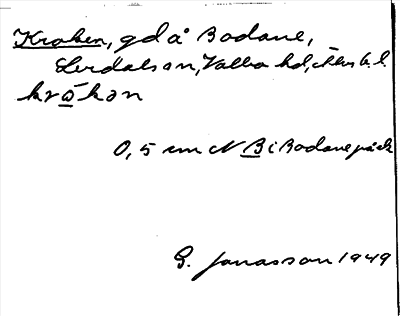 Kroken, gd å Bodane,
Lerdals sn, Valbo hd, Älvs b. l.
krɷkən
0,5 cm N B i Bodane på ek
G. Jonasson 1949